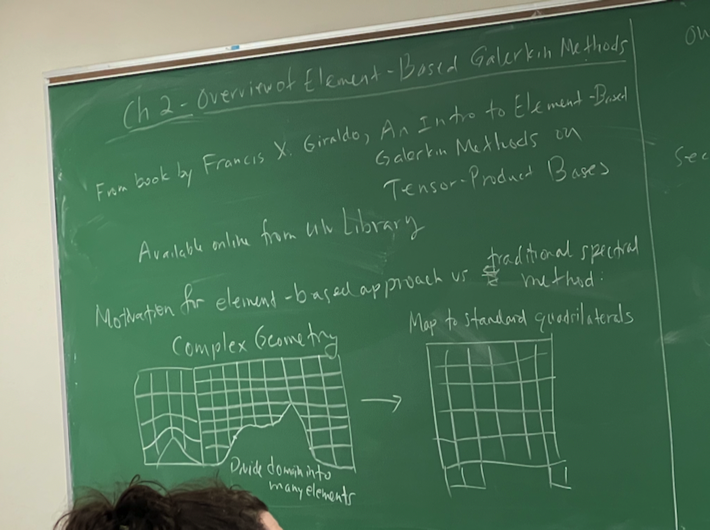 Ch 2 - Overview of Element-Based Galerkin Methods
From book by Francis X. Giraldo, An Intro to Element-Based
Galerkin Methods on
Tensor-Product Bases
Available online from UW Library
Motivation for element-based approach vs traditional spectral
method:
Complex Geometry
Map to standard quadrilaterals
Divide domain into
many elements
ou
Sec